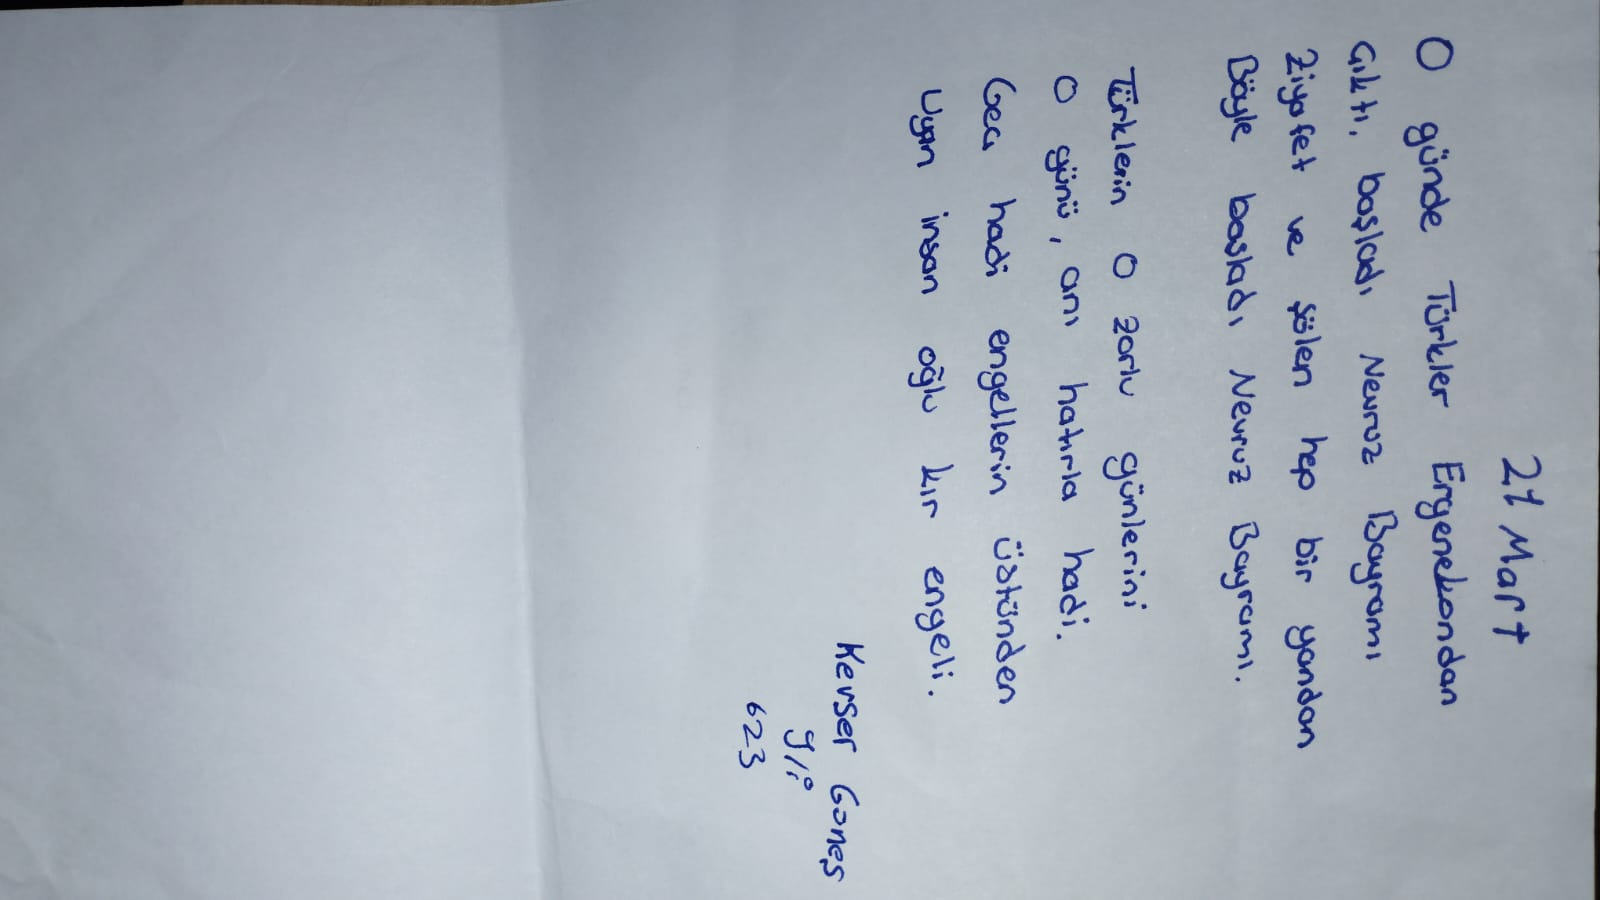 21 Mart
O günde Türkler Ergenekondan
Çıktı, başladı Nevruz Bayramı
Ziyafet ve şölen hep bir yandan
Böyle başladı Nevruz Bayramı.
Türklerin O zorlu günlerini
O günü, anı hatırla hadi.
Geç hadi engellerin üstünden
Uyan insan oğlu kır engeli.
Kevser Güneş
9/i
623